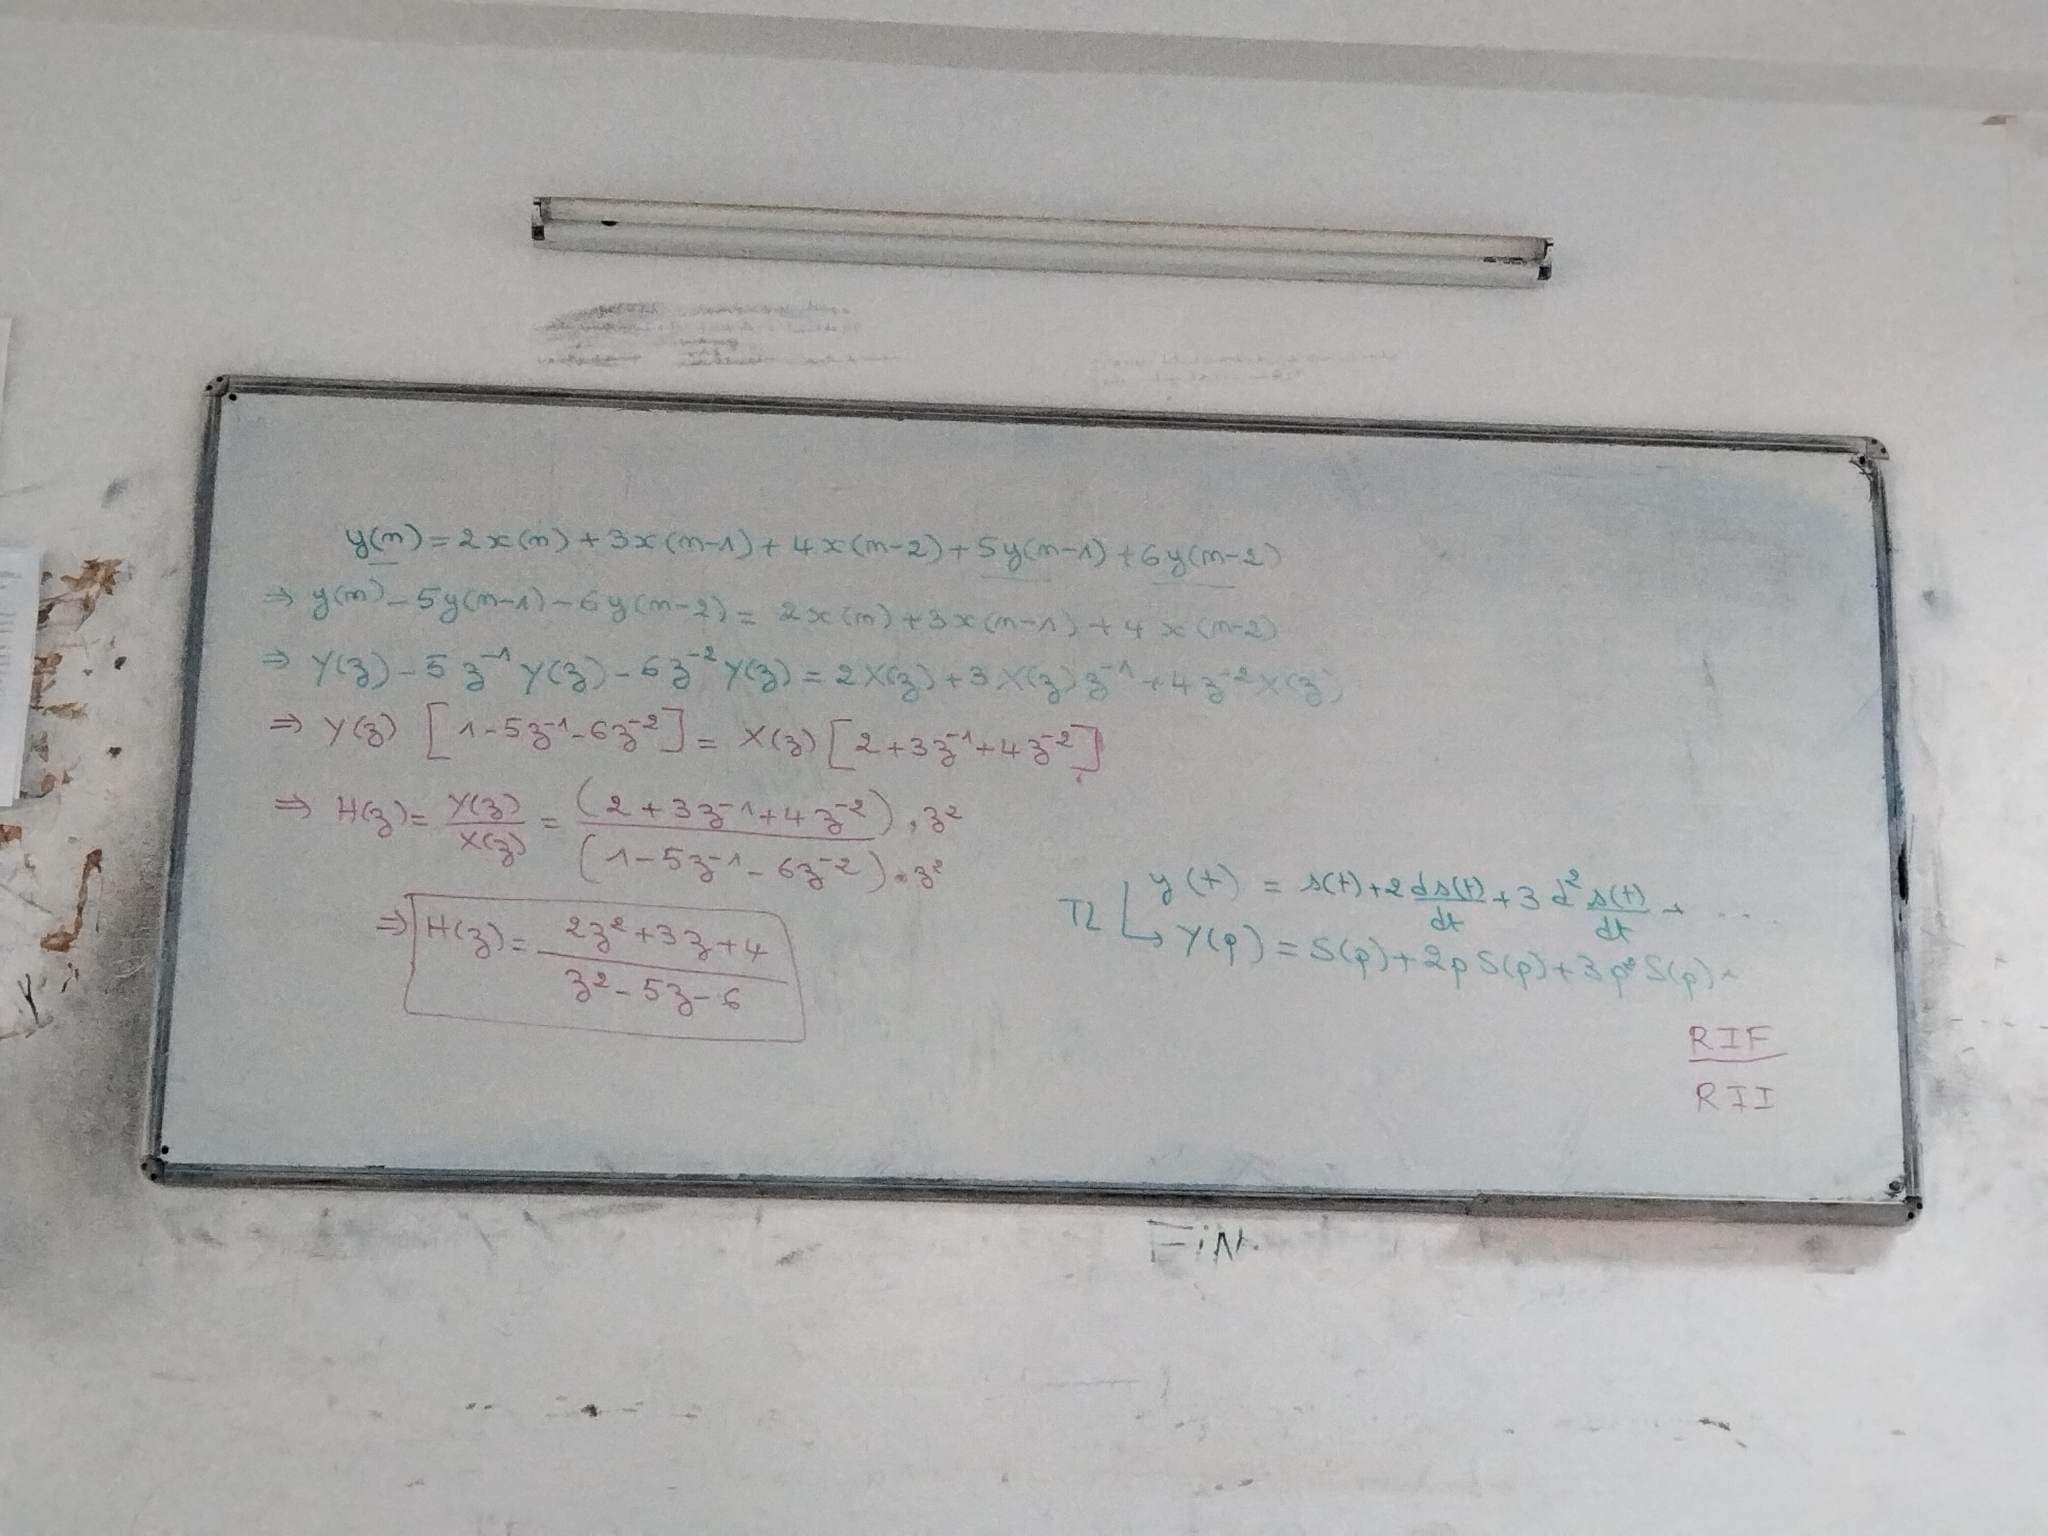 y(n) = 2x(n) + 3x(n-1) + 4x(n-2) + 5y(n-1) + 6y(n-2)
⇒ y(n) - 5y(n-1) - 6y(n-2) = 2x(n) + 3x(n-1) + 4x(n-2)
⇒ Y(z) - 5z⁻¹Y(z) - 6z⁻²Y(z) = 2X(z) + 3X(z)z⁻¹ + 4z⁻²X(z)
⇒ Y(z) [1-5z⁻¹-6z⁻²] = X(z) [2+3z⁻¹+4z⁻²]
⇒ H(z) = Y(z)/X(z) = (2+3z⁻¹+4z⁻²).z² / (1-5z⁻¹-6z⁻²).z²
⇒ H(z) = (2z²+3z+4)/(z²-5z-6)
TL
y(t) = s(t) + 2 ds(t)/dt + 3 d² s(t)/dt + ....
Y(p) = S(p) + 2p S(p) + 3p² S(p)
RIF
RII
FiN.